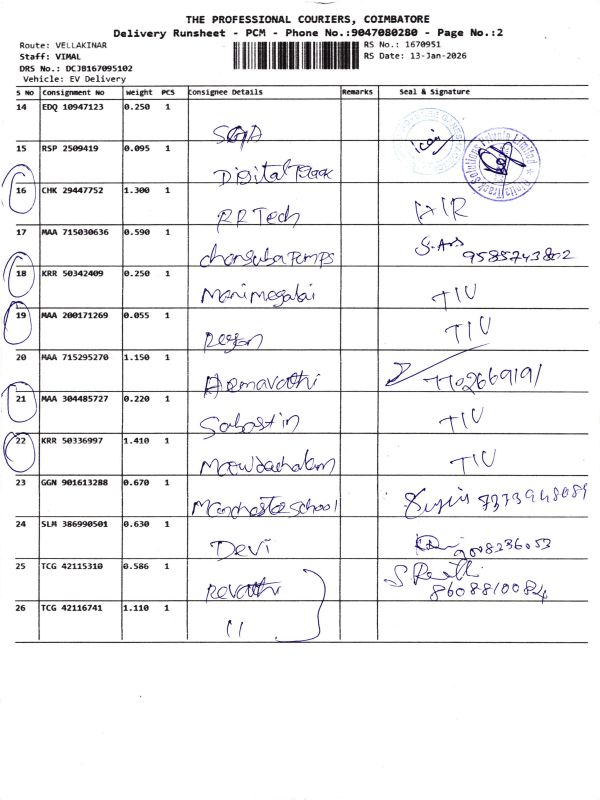 THE PROFESSIONAL COURIERS, COIMBATORE
Delivery Runsheet - PCM - Phone No.:9047080280 - Page No.:2
Route: VELLAKINAR
RS No.: 1670951
Staff: VIMAL
RS Date: 13-Jan-2026
DRS No.: DCJB167095102
Vehicle: EV Delivery
S No Consignment No Weight PCS Consignee Details Remarks Seal & Signature
14 EDQ 10947123 0.250 1
15 RSP 2509419 0.095 1 Digital Track
16 CHK 29447752 1.300 1 RR Tech
17 MAA 715030636 0.590 1 9585743802
18 KRR 50342409 0.250 1 Manimegalai TIU
19 MAA 200171269 0.055 1 TIU
20 MAA 715295270 1.150 1 7702669191
21 MAA 304485727 0.220 1 Sabastin TIU
22 KRR 50336997 1.410 1 TIU
23 GGN 901613288 0.670 1 Manchester School 7373948089
24 SLM 386990501 0.630 1 Devi 9008236053
25 TCG 42115310 0.586 1 Revathi 8608810084
26 TCG 42116741 1.110 1 "